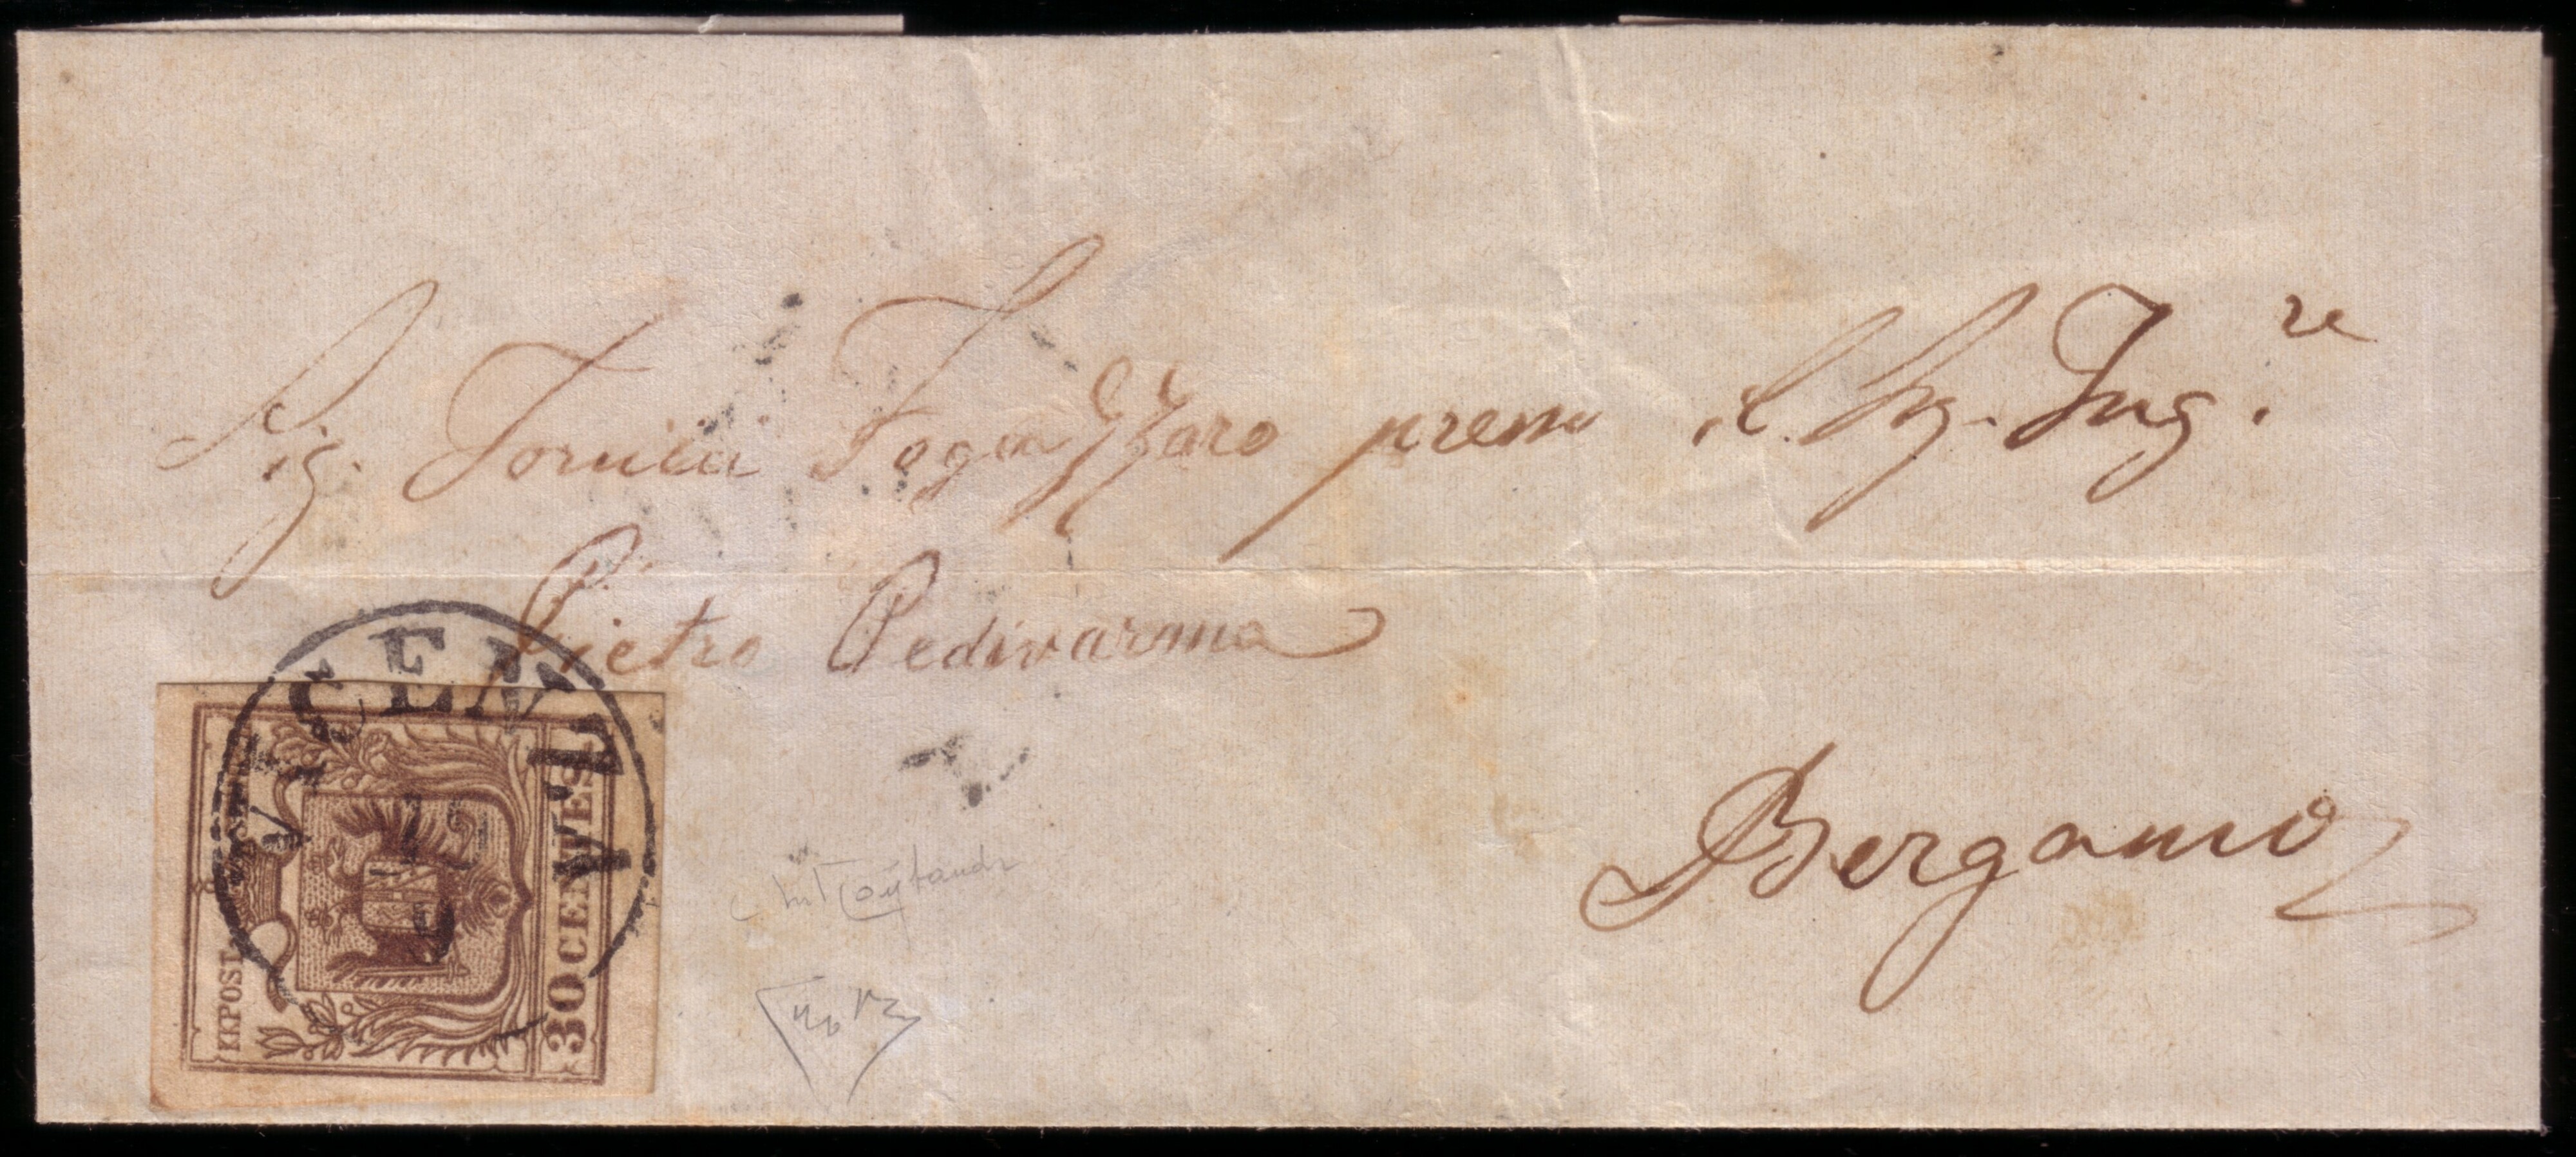 Sig. Tornieri Fogazzaro presso il Sig. Ing.re
Pietro Pedivarma
Bergamo
VICENZA
KK POST-
30 CENTES